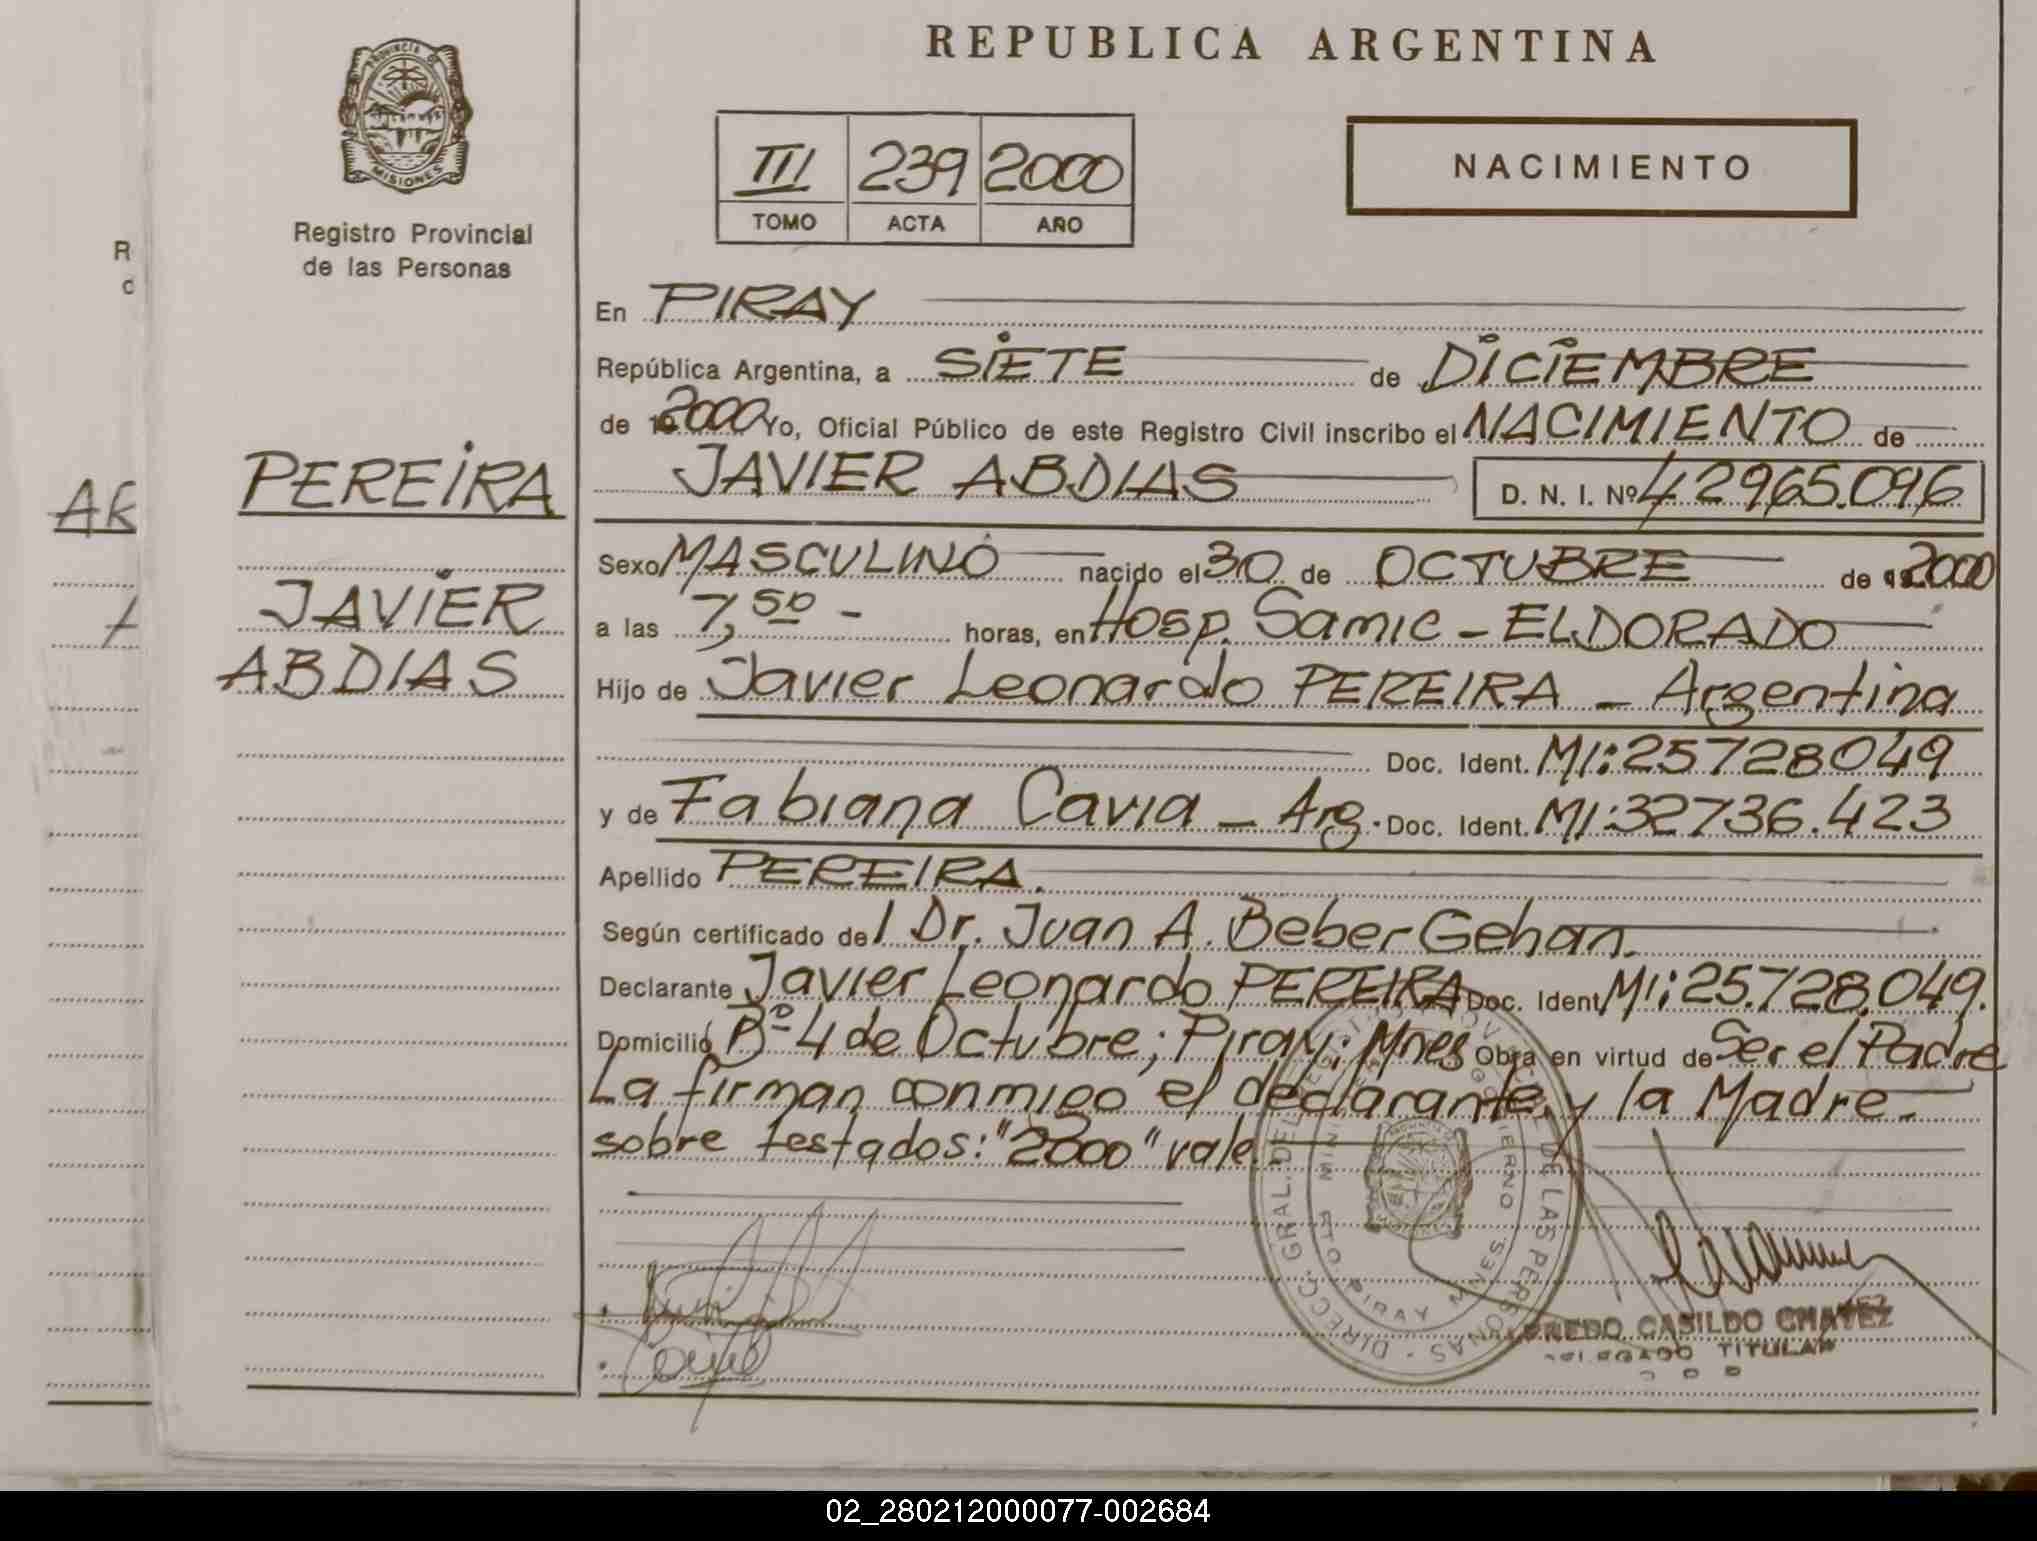 REPUBLICA ARGENTINA
PROVINCIA DE
MISIONES
Registro Provincial
de las Personas
III 239 2000
TOMO ACTA AÑO
NACIMIENTO
R
d
AR
PEREIRA
JAVIER
ABDIAS
En PIRAY
República Argentina, a SIETE de DICIEMBRE
de 19 2000 Yo, Oficial Público de este Registro Civil inscribo el NACIMIENTO de
JAVIER ABDIAS D. N. I. Nº 42965.096
Sexo MASCULINO nacido el 30 de OCTUBRE de 19 2000
a las 7,50 - horas, en Hosp. Samic - ELDORADO
Hijo de Javier Leonardo PEREIRA - Argentina
Doc. Ident. MI:25728049
y de Fabiana Cavia - Arg. Doc. Ident. MI:32736.423
Apellido PEREIRA.
Según certificado de l Dr. Juan A. Beber Gehan.
Declarante Javier Leonardo PEREIRA Doc. Ident. MI:25.728.049.
Domicilio Bº 4 de Octubre; Piray; Mnes Obra en virtud de Ser el Padre
La firman conmigo el declarante y la Madre.
sobre testados: "2000" vale.
DIRECC. GRAL. DEL REGISTRO PROVINCIAL DE LAS PERSONAS
GOBIERNO
PIRAY MNES.
CASILDO CHAVEZ
DELEGADO TITULAR
02_280212000077-002684